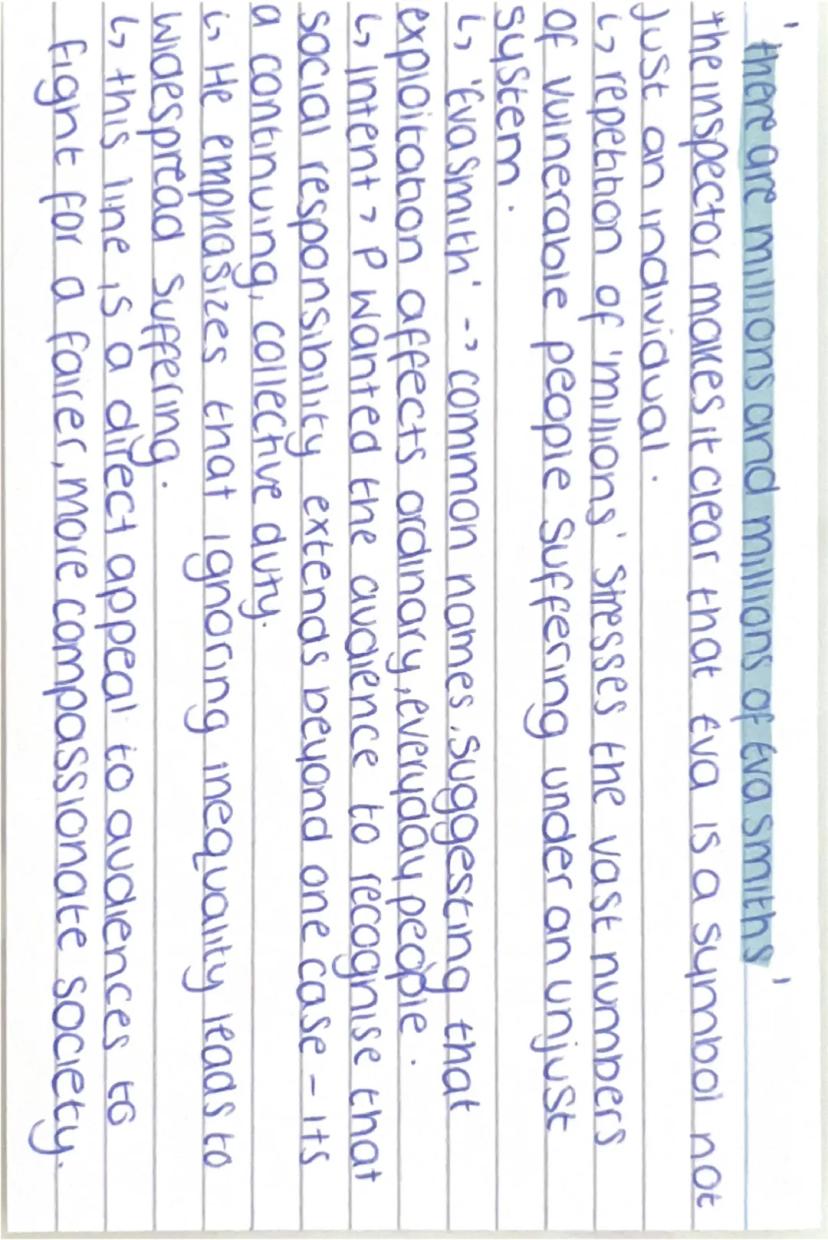 'there are millions and millions of Eva smiths'
the inspector makes it clear that Eva is a symbol not
just an individual.
↳ repetition of 'millions' stresses the vast numbers
of vulnerable people suffering under an unjust
system.
↳ 'Eva smith' -> common names, suggesting that
exploitation affects ordinary, everyday people.
↳ intent > P wanted the audience to recognise that
social responsibility extends beyond one case - its
a continuing, collective duty.
↳ He emphasizes that ignoring inequality leads to
widespread suffering.
↳ this line is a direct appeal to audiences to
fight for a fairer, more compassionate society.